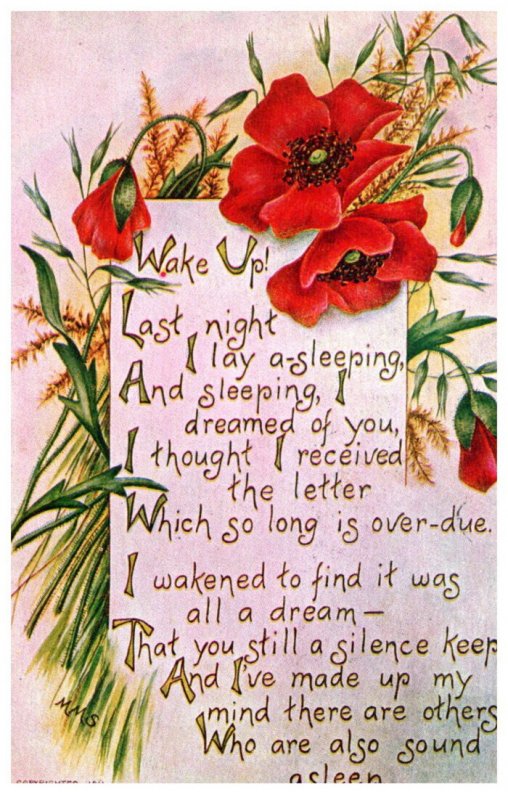 Wake Up!
Last night
I lay a-sleeping,
And sleeping, I
dreamed of you,
I thought I received
the letter
Which so long is over-due.
I wakened to find it was
all a dream—
That you still a silence keep
And I've made up my
mind there are others
Who are also sound
asleep
MMS
COPYRIGHTED